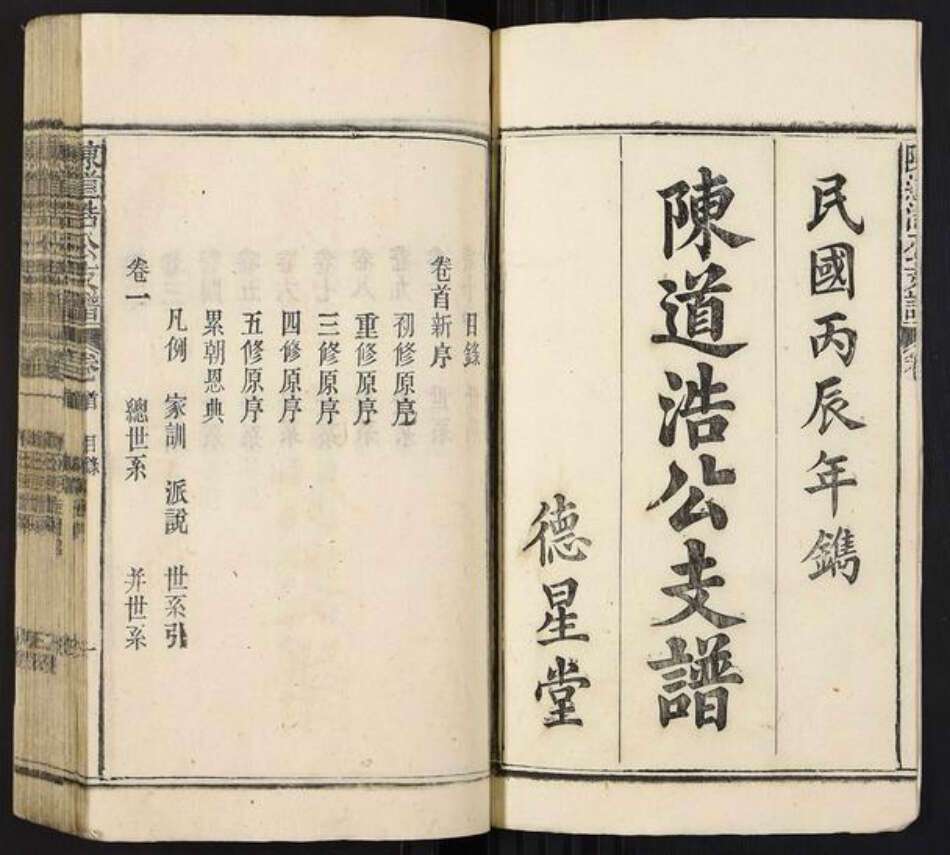 民國丙辰年鐫
陳道浩公支譜
德星堂
目錄
卷首新序
初修原序
重修原序
三修原序
四修原序
五修原序
累朝恩典
凡例 家訓 派說 世系引
卷一 總世系 并世系
陳道浩公支譜 卷首 目錄 一